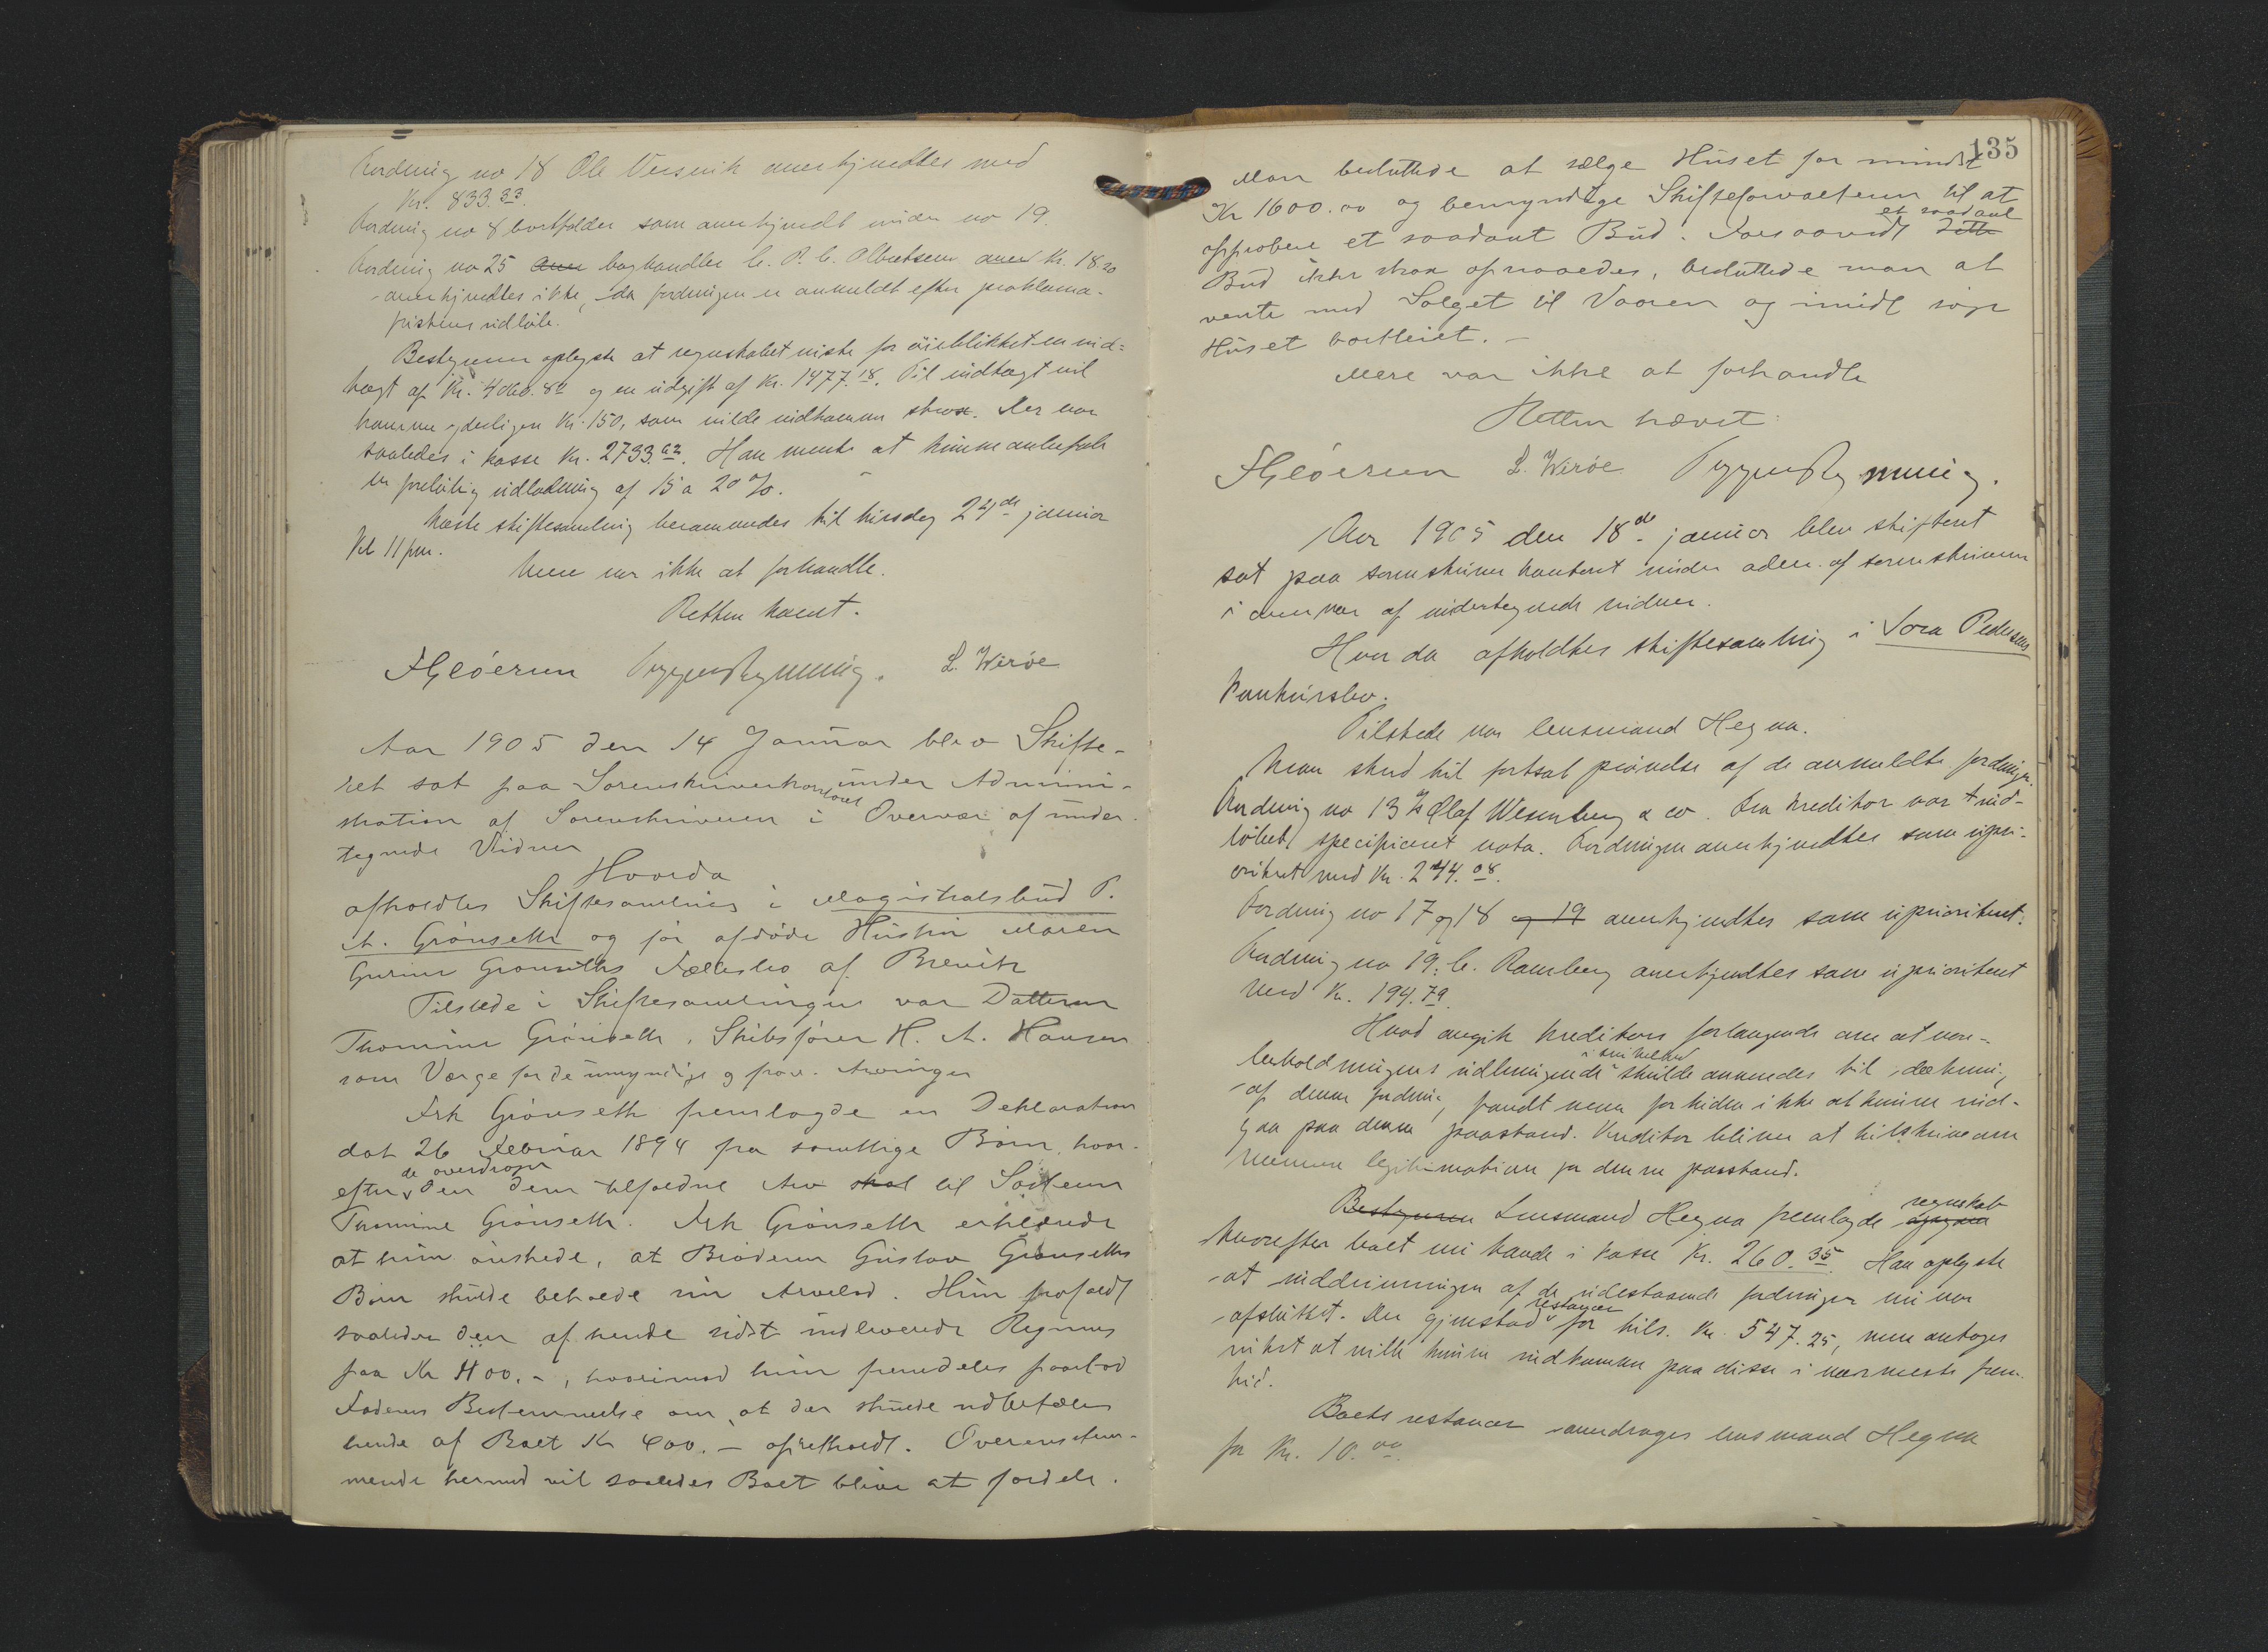 Fordring no 18 Ole Versvik anerkjendtes med
Kr. 833.33.
Fordring no 8 bortfalder som anerkjendt under no 19.
Fordring no 25 boghandler C. P. C. Albretsen Kr. 18.20
anerkjendtes ikke, da fordringen er anmeldt efter proklama-
fristens udløb.
Bestyreren oplyste at regnskabet viste for øieblikket en ind-
tægt af Kr. 4060.80 og en udgift af Kr. 1477.18. Til indtægt vil
komme yderligere Kr. 150, som vilde indkomme strax. Der var
saaledes i kasse Kr. 2733.62. Han mente at kunne anbefale
en foreløbig udlodning af 15 a 20 %.
Næste skiftesamling berammedes til tirsdag 24de januar
Kl 11 fm.
Mere var ikke at forhandle.
Retten hævet.
L. Werøe
Aar 1905 den 14 Januar blev Skifte-
ret sat paa Sorenskriverkontoret under Admini-
stration af Sorenskriveren i Overvær af under-
tegnede Vidner
Hvorda
afholdtes Skiftesamling i Magistratsbud P.
A. Grønseth og før afdøde Hustru Maren
Gurine Grønseths Fællesbo af Brevik
Tilstede i Skiftesamlingen var Datteren
Thomine Grønseth, Skibsfører H. A. Hansen
som Værge for de umyndige og frav. Arvinger
Frk Grønseth fremlagde en Deklaration
dat 26 Februar 1894 fra samtlige Børn, hvor-
efter de overdrager den dem tilfaldne Arv skal til Søsteren
Thomine Grønseth. Frk Grønseth erklærede
at hun ønskede, at Broderen Gustav Grønseths
Børn skulde beholde sin Arvelod. Hun frafaldt
saaledes den af hende sidst indleverede Regning
paa Kr 400.-, hvorimod hun fremdeles paastod
Faderens Bestemmelse om, at der skulde udbetales
hende af Boet Kr 400.- opretholdt. Overensstem-
mende hermed vil saaledes Boet blive at fordele.
135
Man besluttede at sælge Huset for mindst
Kr 1600.00 og bemyndige Skifteforvalteren til at
approbere et saadant Bud. Forsaavidt et saadant dette
Bud ikke strax opnaaedes, besluttede man at
vente med Salget til Vaaren og imidl søge
Huset bortleiet. -
Mere var ikke at forhandle
Retten hævet:
L. Werøe
Aar 1905 den 18de januar blev skifteret
sat paa sorenskriverkontoret under adm. af sorenskriveren
i overvær af undertegnede vidner.
Hvor da afholdtes skiftesamling i Tora Pedersens
konkursbo.
Tilstede var lensmand Hegna.
Man skred til fortsat prøvelse af de anmeldte fordringer.
Fordring no 13 Olaf Wesenberg & co. Fra kreditor var ind-
løbet specificeret nota. Fordringen anerkjendtes som upri-
oriteret med Kr. 244.08.
Fordring no 17 og 18 og 19 anerkjendtes som uprioriteret.
Fordring no 19. C. Ramberg anerkjendtes som uprioriteret
med Kr. 194.79.
Hvad angik kreditors forlangende om at vare-
beholdningens udbringende i sin helhed skulde anvendes til dækning
af denne fordring, fandt man for tiden ikke at kunne ind-
gaa paa denne paastand. Kreditor bliver at tilskrive om
nærmere legitimation for denne paastand.
Bestyreren Lensmand Hegna fremlagde regnskab
hvorefter boet nu havde i kasse Kr. 260.35. Han oplyste
at inddrivningen af de udestaaende fordringer nu var
afsluttet. Der gjenstod restancer for tils. Kr. 547.25, men antoges
intet at ville kunne indkomme paa disse i nærmeste frem-
tid.
Boets restancer overdrages lensmand Hegna
for Kr. 10.00.